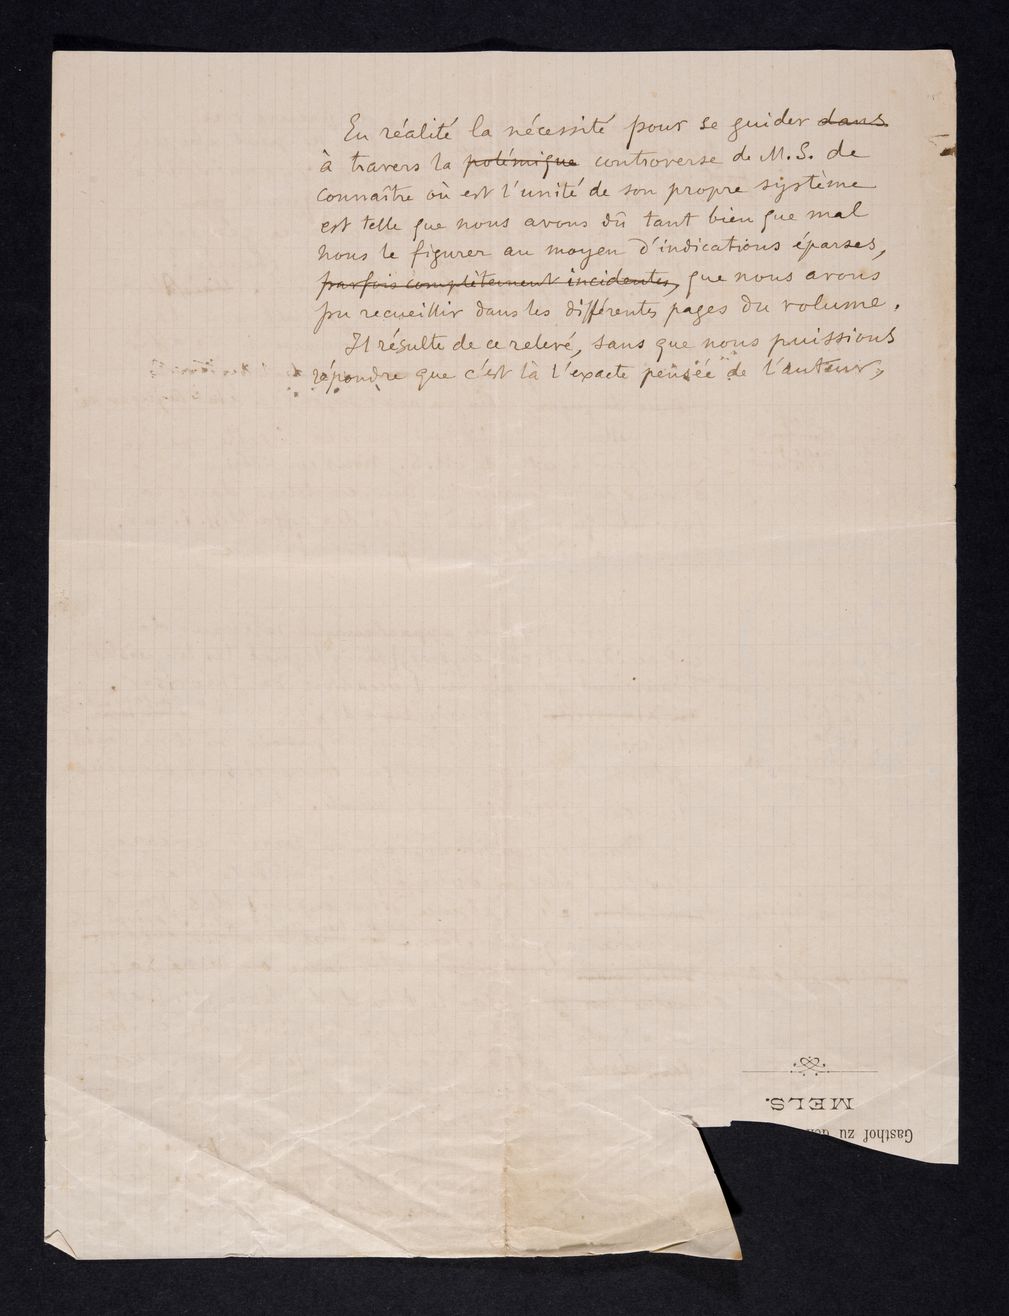 En réalité la nécessité pour se guider dans
à travers la polémique controverse de M. S. de
connaître où est l'unité de son propre système
est telle que nous avons dû tant bien que mal
nous le figurer au moyen d'indications éparses,
parfois complètement incidentes, que nous avons
pu recueillir dans les différentes pages du volume.
Il résulte de ce relevé, sans que nous puissions
répondre que c'est là l'exacte pensée de l'auteur,
MELS.
Gasthof zu